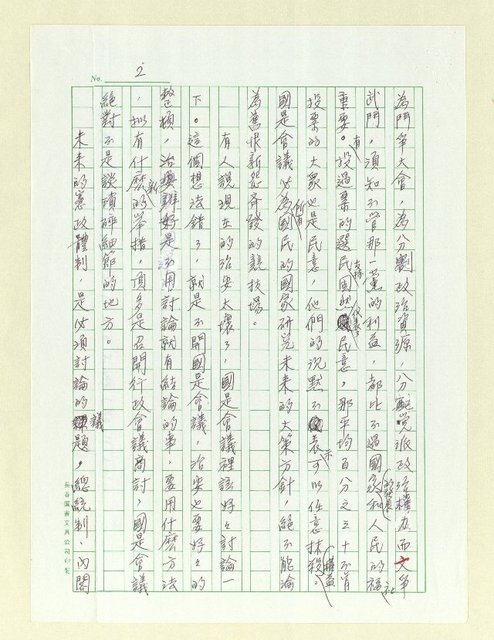 No. 2
為鬥爭大會，為分劃政治資源，分配黨派政治權力而文爭
武鬥，須知不管那一黨的利益，都比不過國家和人民的福祉
重要。有投過票的選民固然代表民意，那平均百分之五十不肯
投票的大眾也是民意，他們的沉默不表示可以任意抹殺權益，
國是會議必為所有國民的國家研究未來的大策方針，絕不能淪
為舊恨新怨奔發的競技場。
有人說現在的治安太壞了，國是會議裡該好好討論一
下。這個想法錯了，就是不開國是會議，治安也要好好的
整頓，治安辦好是不用討論就有結論的事，要用什麼方法
，擬有什麼新的舉措，頂多是召開行政會議商討，國是會議
絕對不是談積碎細節的地方。
未來的憲政體制，是必須討論的議題，總統制、內閣
長春國書文具公司印製